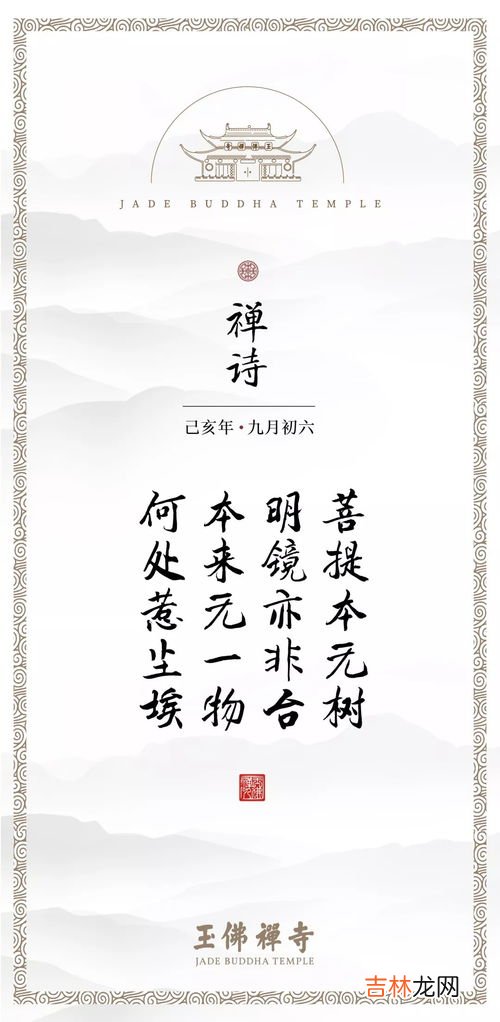 玉佛禅寺
JADE BUDDHA TEMPLE
禅诗
己亥年·九月初六
菩提本无树
明镜亦非台
本来无一物
何处惹尘埃
玉佛禪寺
JADE BUDDHA TEMPLE
吉林龙网